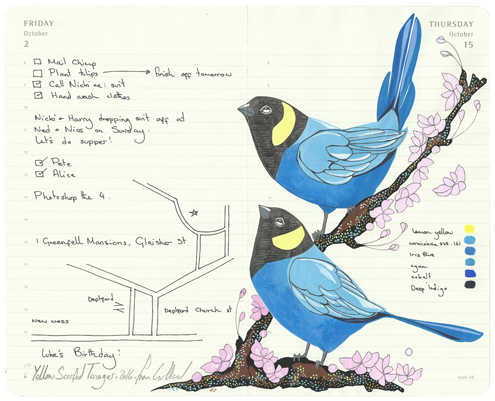 FRIDAY
October
2
Mail Chimp
Plant tulips → finish off tomorrow
Call Nicki re: suit
Hand wash clothes
Nicki + Harry dropping suit off at
Ned + Nics' on Sunday.
Let's do supper!
Pete
Alice
Photoshop the 4.
1 Greenfell Mansions, Glaisher St
Deptford
Deptford Church st
New cross
Luke's Birthday!
Yellow Scarfed Tanager 2016
THURSDAY
October
15
lemon yellow
Iris Blue
cyan
cobalt
Deep Indigo